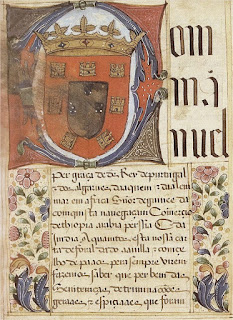 Dom
ma
nuel
per graça de ds Rey de portugal
e dos algarues daaquem e dalem
mar em africa Sñor de guinee e da
comquista navegaçam Comercio
dethiopia arabia persia E da
Jndia A quamtos esta nosa car
ta de foral dado aa villa
pera sempre virem
fazemos saber que per bem das
Sentenças determinações
geraaes e espiçiaaes que foram